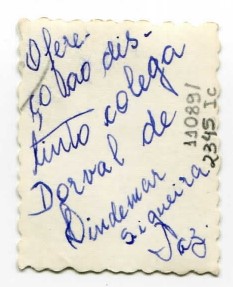 Ofere-
ço ao dis-
tinto colega
Dorval de
Dindemar
Siqueira
Vaz.
11089/
2345 Ic